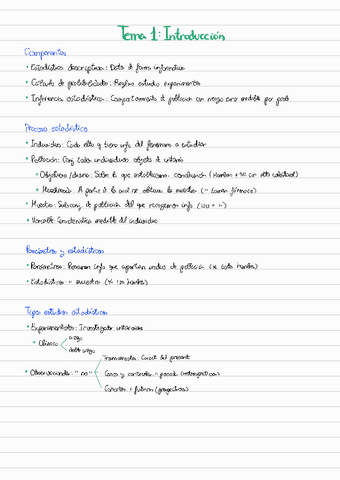 Tema 1: Introducción
Componentes
• Estadística descriptiva: Dato de forma informativa
• Cálculo de probabilidades: Reglas estudio experimentos
• Inferencia estadística: Comportamiento de población con riesgo error medible por prob
Proceso estadístico
• Individuos: Cada elto q tiene info del fenómeno a estudiar
• Población: Conj todos individuos objeto de
• Objetivo/diana: Sobre la que establecemos conclusión (Hombres +40 con alto colesterol)
• Muestreada: A partir de la cual se obtiene la muestra (" )
• Muestra: Subconj. de población del que recogemos info (100 " ")
• Variable: Característica medible del individuo
Parámetros y estadísticos
• Parámetros: Resumen info que aportan de población (x todos hombres)
• Estadísticos: " muestra (x 100 hombres)
Tipos estudios estadísticos
• Experimentales: Investigador interviene
• Clínico
ciego
doble ciego
• Observacionales: " no "
Transversales: Caract del present
Casos y controles: " pasado (retrospectivos)
Cohortes: " futuro (prospectivos)